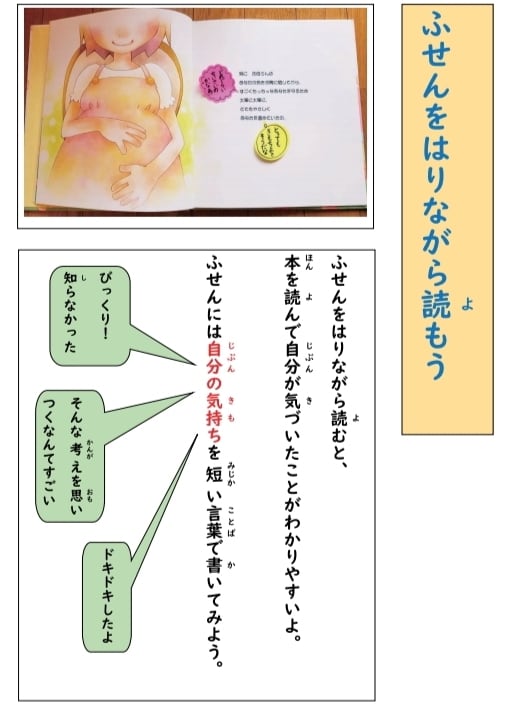 ふせんをはりながら読もう
ふせんをはりながら読むと、
本を読んで自分が気づいたことがわかりやすいよ。
ふせんには自分の気持ちを短い言葉で書いてみよう。
びっくり!
知らなかった
そんな考えを思い
つくなんてすごい
ドキドキしたよ